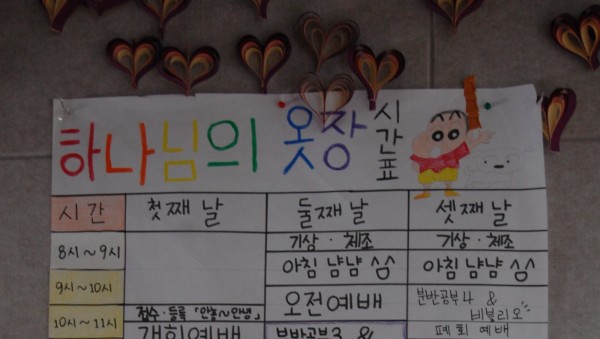 하나님의 옷장 시간표
시간 첫째 날 둘째 날 셋째 날
8시~9시 기상·체조 기상·체조
아침 냠냠 ^^ 아침 냠냠 ^^
9시~10시 오전예배 분반공부4 & 비블리오
10시~11시 접수·등록 「안뇽~안녕」 폐회 예배
개회예배 분반공부3 &